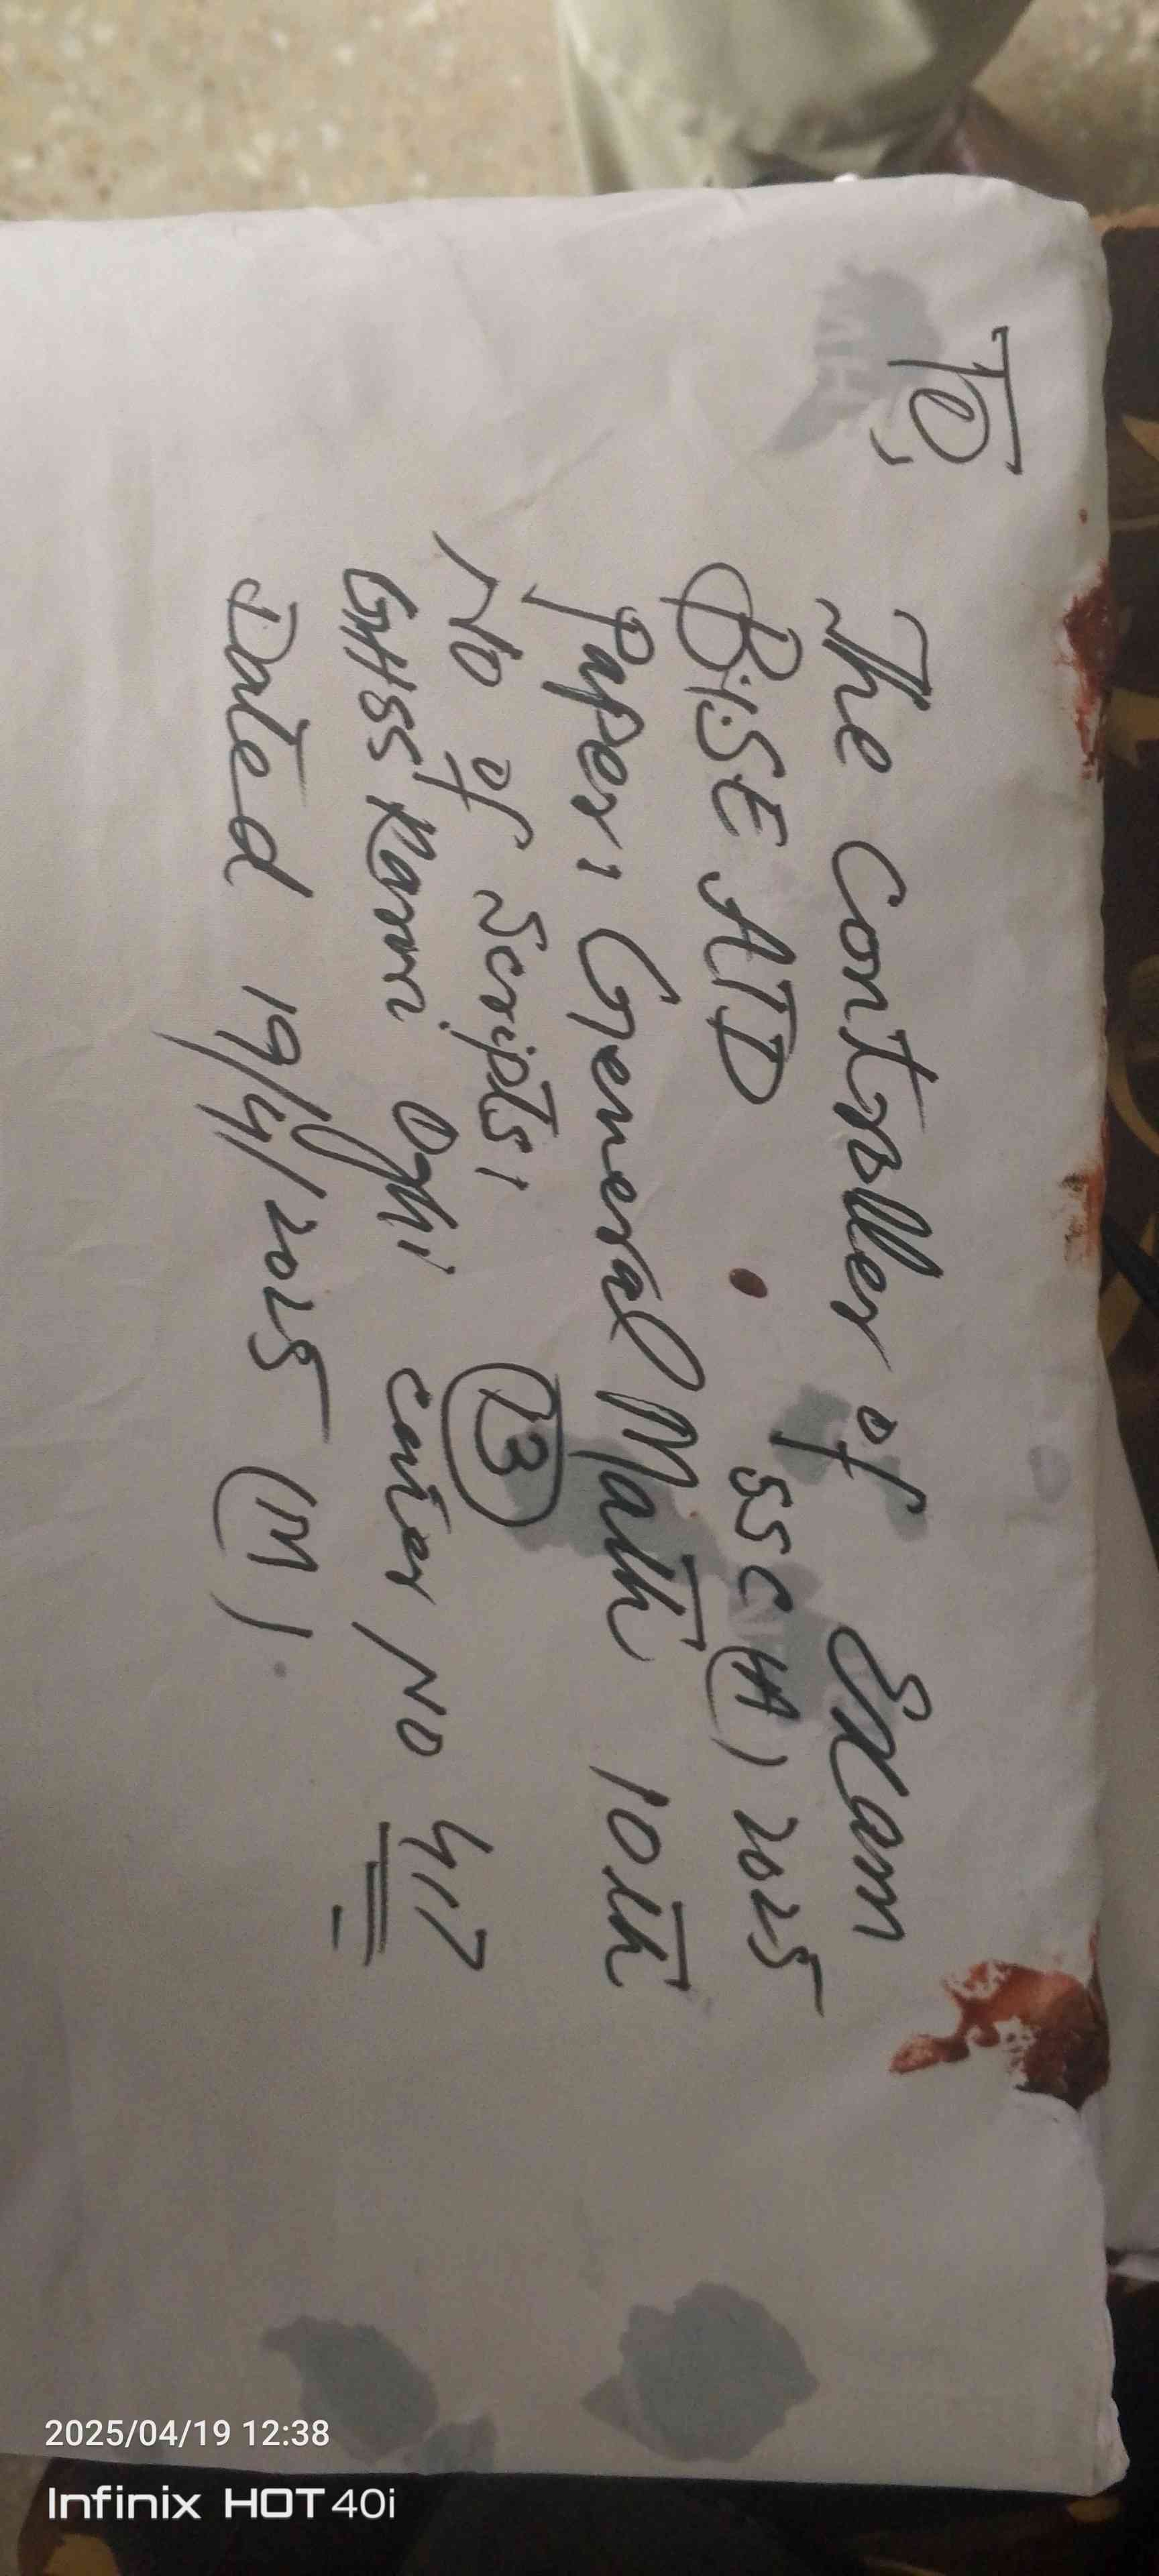 To,
The Controller of Exam
BISE ATD SSC (A) 2025
Paper: General Math 10th
No of Scripts: 13
GHSS Karori Oghi center No 417
Dated 19/4/2025 (M)
2025/04/19 12:38
Infinix HOT 40i